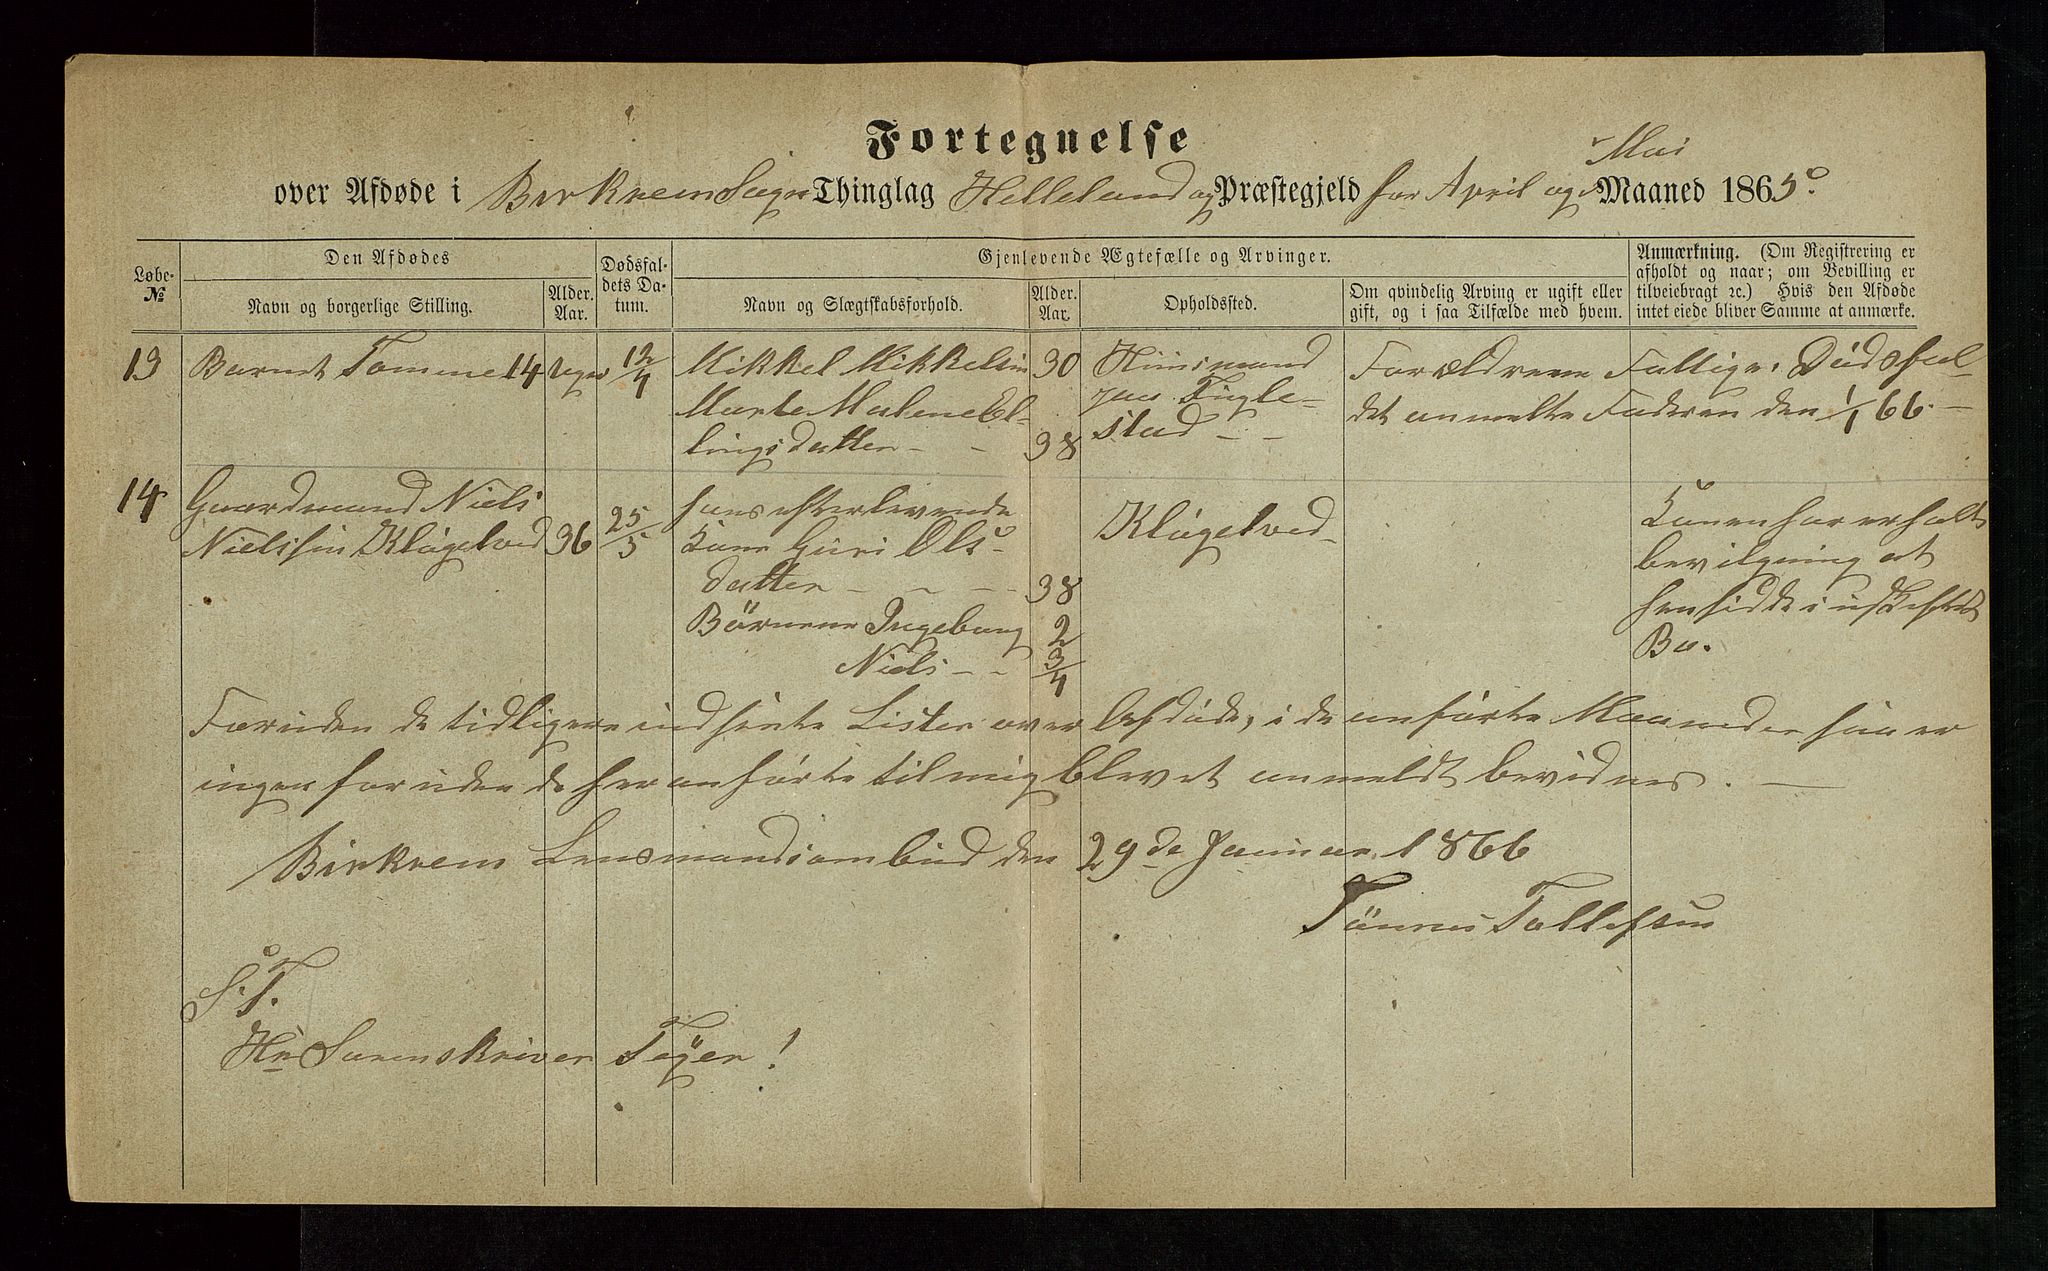 Fortegnelse
over Afdøde i Birkrem Sogn Thinglag Helleland og Præstegjeld for April og Mai Maaned 1865.
Løbe-№
Den Afdødes
Navn og borgerlige Stilling.
Alder. Aar.
Dødsfaldets Datum.
Gjenlevende Ægtefælle og Arvinger.
Navn og Slægtskabsforhold.
Alder. Aar.
Opholdssted.
Om qvindelig Arving er ugift eller
gift, og i saa Tilfælde med hvem.
Anmærkning. (Om Registrering er
afholdt og naar; om Bevilling er
tilveiebragt ꝛc.) Hvis den Afdøde
intet eiede bliver Samme at anmærke.
13 Barnet Tomine 14 Dage 12/4 Mikkel Mikkelsen 30 Huusmand Forældrene Fattige. Dødsfal-
Marte Malene El- paa Tingle- det anmeldte Faderen den 1/1 66. –
lingsdatter – – 38 stad – –
14 Gaardmand Niels
Nielssen Kløgetved 36 25/5
hans efterlevende
Kone Guri Ols-
datter – – – 38
Børnene Ingeborg 2
Niels – – 3/4
Kløgetved –
Konen har erholdt
bevilgning at
hensidde i uskiftet
Bo.
Foruden de tidligere indsendte Lister over Afdøde, i de anførte Maaneder saa er
ingen foruden de her anførte til mig blevet anmeldt bevidnes. –
Birkrem Lensmandsombud den 29de Januar 1866
Tönnes Tollefsen
S. T.
Hr Sorenskriver Feyer!